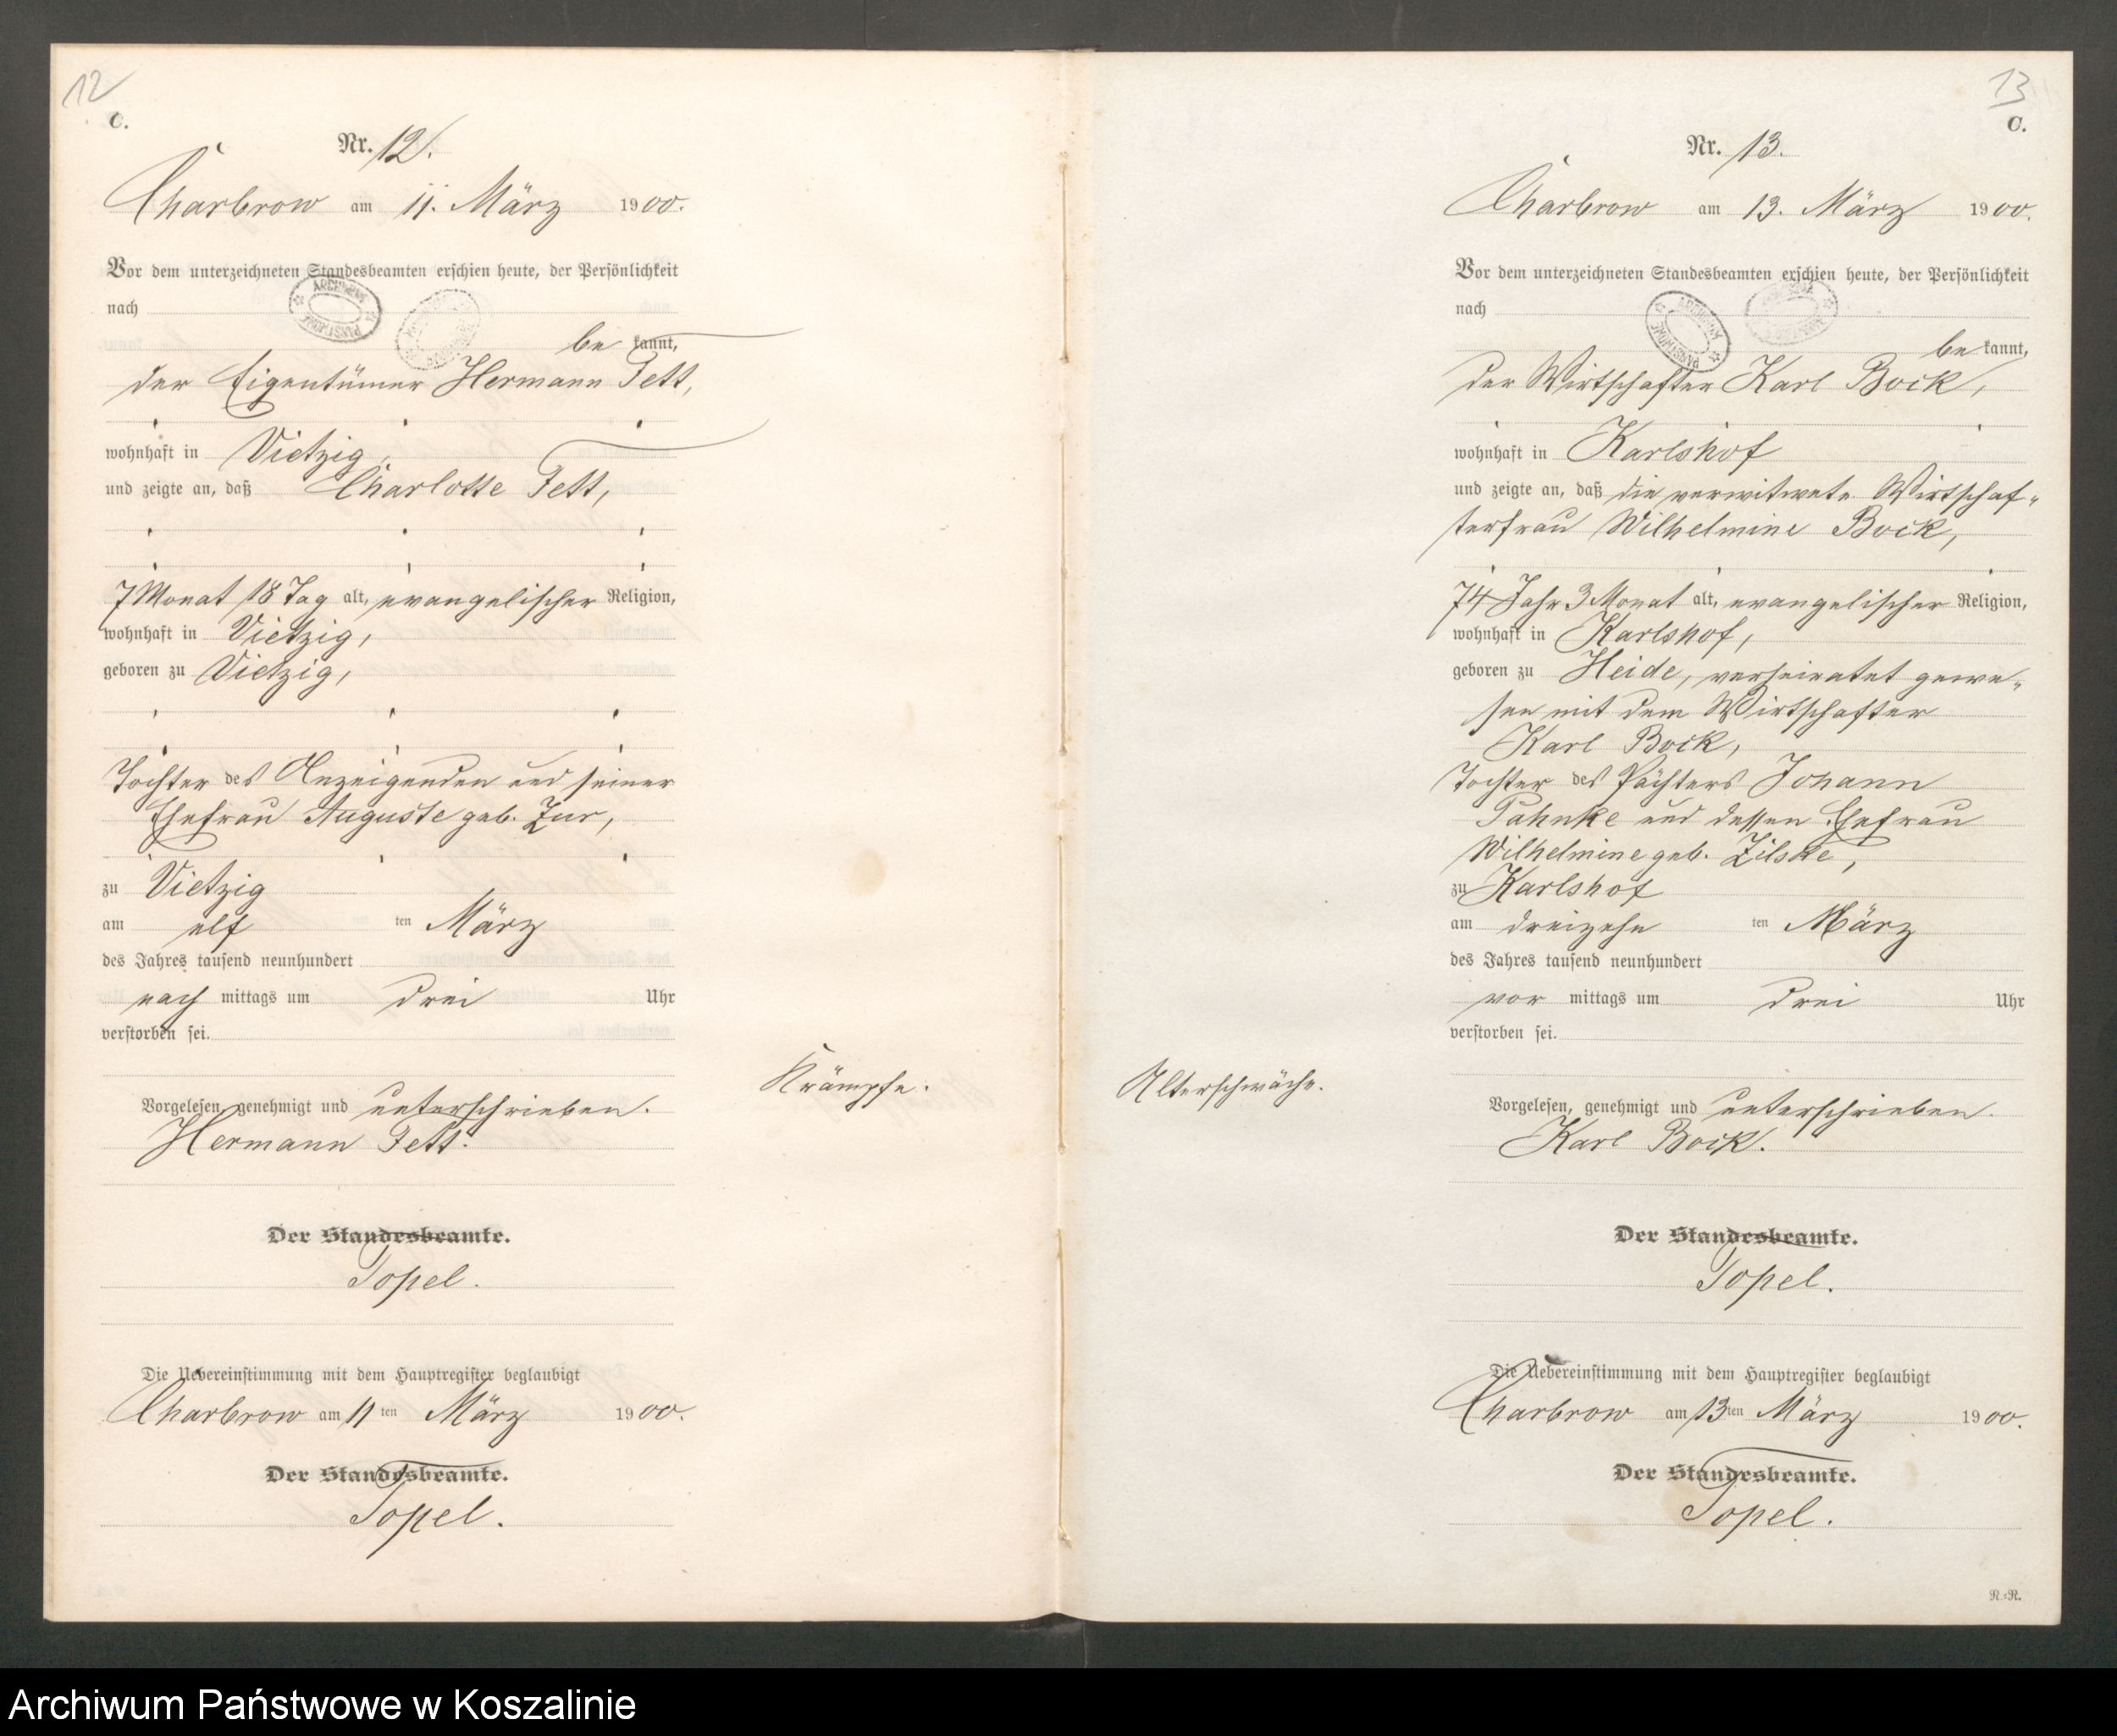 12
C.
Nr. 12.
Charbrow am 11. März 1900.
Vor dem unterzeichneten Standesbeamten erschien heute, der Persönlichkeit
nach
be kannt,
der Eigentümer Hermann Fett,
wohnhaft in Vietzig,
und zeigte an, daß Charlotte Fett,
7 Monat 18 Tag alt, evangelischer Religion,
wohnhaft in Vietzig,
geboren zu Vietzig,
Tochter des Anzeigenden und seiner
Ehefrau Auguste geb. Zur,
zu Vietzig
am elf ten März
des Jahres tausend neunhundert
nach mittags um drei Uhr
verstorben sei.
Krämpfe.
Vorgelesen, genehmigt und unterschrieben.
Hermann Fett.
Der Standesbeamte.
Topel.
Die Uebereinstimmung mit dem Hauptregister beglaubigt
Charbrow am 11 ten März 1900.
Der Standesbeamte.
Topel.
13
C.
Nr. 13.
Charbrow am 13. März 1900.
Vor dem unterzeichneten Standesbeamten erschien heute, der Persönlichkeit
nach
be kannt,
der Wirtschafter Karl Bock,
wohnhaft in Karlshof
und zeigte an, daß die verwitwete Wirtschaf-
terfrau Wilhelmine Bock,
74 Jahr 3 Monat alt, evangelischer Religion,
wohnhaft in Karlshof,
geboren zu Heide, verheiratet gewe-
sen mit dem Wirtschafter
Karl Bock,
Tochter des Pächters Johann
Pahnke und dessen Ehefrau
Wilhelmine geb. Zilske,
zu Karlshof
am dreizehn ten März
des Jahres tausend neunhundert
vor mittags um drei Uhr
verstorben sei.
Alterschwäche.
Vorgelesen, genehmigt und unterschrieben.
Karl Bock.
Der Standesbeamte.
Topel.
Die Uebereinstimmung mit dem Hauptregister beglaubigt
Charbrow am 13 ten März 1900.
Der Standesbeamte.
Topel.
R.-R.
Archiwum Państwowe w Koszalinie